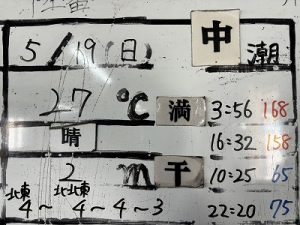 5/19(日) 中潮
27℃ 満 3:56 168
晴 16:32 158
2m 干 10:25 65
北東 北北東
4~4~4~3 22:20 75